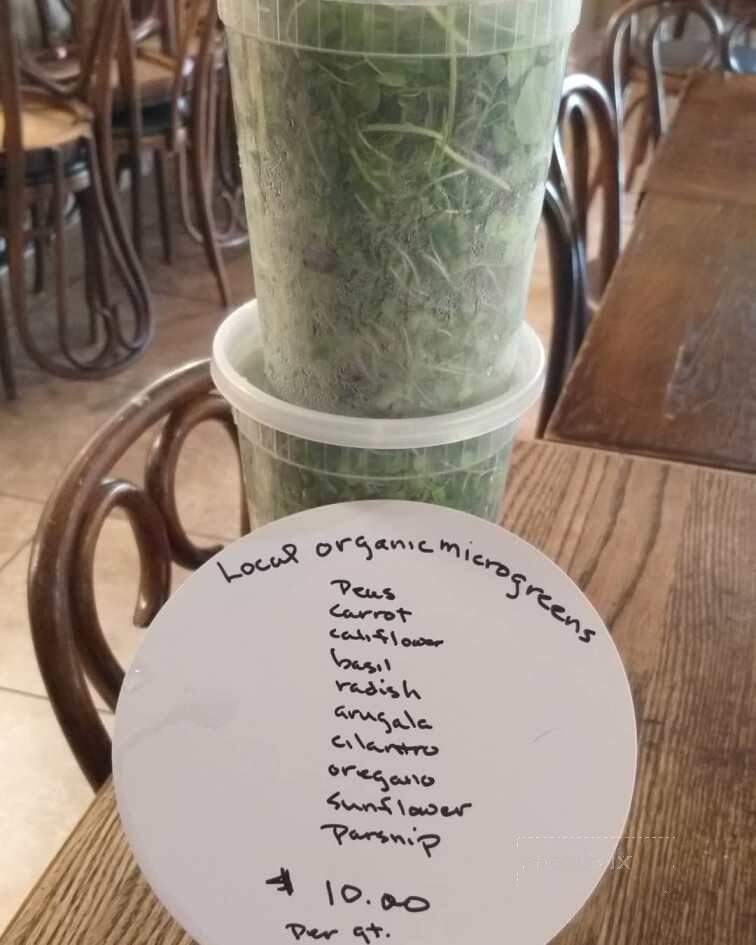 Local organic microgreens
Peas
carrot
califlower
basil
radish
arugala
cilantro
oregano
sunflower
Parsnip
$ 10.00
Per qt.